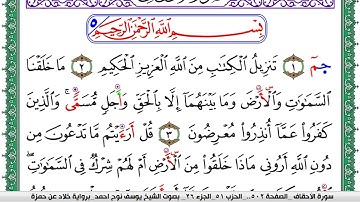 بِسْمِ ٱللَّهِ ٱلرَّحْمَٰنِ ٱلرَّحِيمِ
حمٓ ١ تَنزِيلُ ٱلْكِتَٰبِ مِنَ ٱللَّهِ ٱلْعَزِيزِ ٱلْحَكِيمِ ٢ مَا خَلَقْنَا
ٱلسَّمَٰوَٰتِ وَٱلْأَرْضَ وَمَا بَيْنَهُمَا إِلَّا بِٱلْحَقِّ وَأَجَلٍ مُّسَمًّى ۚ وَٱلَّذِينَ
كَفَرُوا۟ عَمَّا أُنذِرُوا۟ مُعْرِضُونَ ٣ قُلْ أَرَءَيْتُم مَّا تَدْعُونَ مِن
دُونِ ٱللَّهِ أَرُونِى مَاذَا خَلَقُوا۟ مِنَ ٱلْأَرْضِ أَمْ لَهُمْ شِرْكٌ فِى ٱلسَّمَٰوَٰتِ ۖ
سورة الأحقاف_الصفحة ٥٠٢_ الحزب ٥١_ الجزء ٢٦_ بصوت الشيخ يوسف نوح احمد برواية خلاد عن حمزة